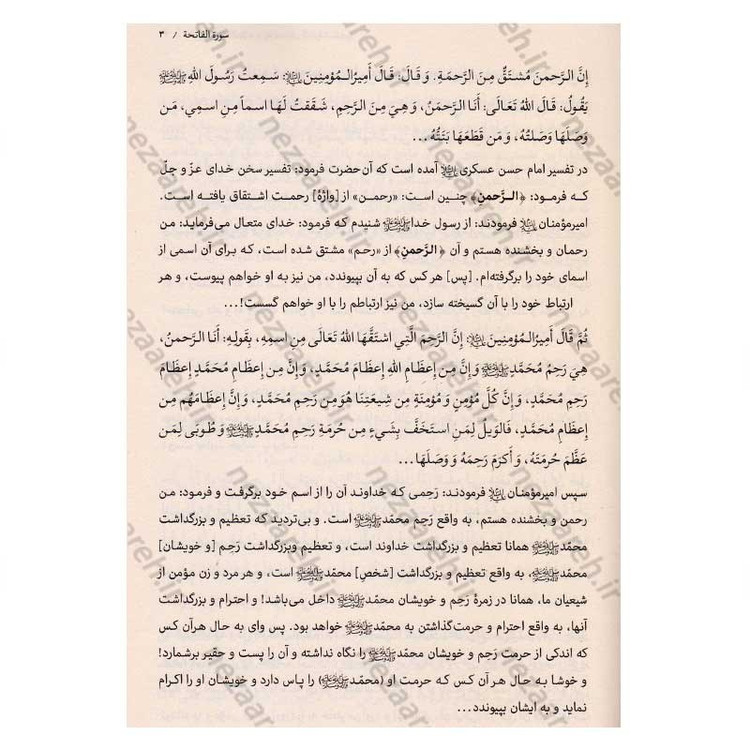 سورة الفاتحة / ٣
إِنَّ الرَّحمنَ مُشتَقٌّ مِنَ الرَّحمَةِ. وَ قَالَ: قَالَ أَمِيرُالـمُؤمِنِينَ: سَمِعتُ رَسُولَ اللهِ ﷺ
يَقُولُ: قَالَ اللهُ تَعَالَى: أَنَا الرَّحمَنُ، وَهِيَ مِنَ الرَّحِمِ، شَقَقتُ لَهَا اسماً مِن اسمِي، مَن
وَصَلَهَا وَصَلتُهُ، وَ مَن قَطَعَهَا بَتَتُّهُ...
در تفسیر امام حسن عسکری آمده است که آن‌حضرت فرمود: تفسیر سخن خدای عزّ و جلّ
که فرمود: ﴿الـرَّحمنِ﴾ چنین است: «رحمن» از [واژهٔ] رحمت اشتقاق یافته است.
امیرمؤمنان فرمودند: از رسول خداﷺ شنیدم که فرمود: خدای متعال می‌فرماید: من
رحمان و بخشنده هستم و آن ﴿الرَّحمنِ﴾ از «رحـم» مشتق شده است، که برای آن اسمی از
اسمای خود را برگرفته‌ام. [پس] هر کس که به آن بپیوندد، من نیز به او خواهم پیوست، و هر
ارتباط خود را با آن گسیخته سازد، من نیز ارتباطم را با او خواهم گسست!...
ثُمَّ قَالَ أَمِيرُالـمُؤمِنِينَ: إِنَّ الرَّحِمَ الَّتِي اشتَقَّهَا اللهُ تَعَالَى مِنِ اسمِهِ، بِقَولِهِ: أَنَا الرَّحمنُ،
هِيَ رَحِمُ مُحَمَّدٍﷺ وَ إِنَّ مِن إِعظَامِ اللهِ إِعظَامَ مُحَمَّدٍ، وَ إِنَّ مِن إِعظَامِ مُحَمَّدٍ إِعظَامَ
رَحِمِ مُحَمَّدٍ، وَ إِنَّ كُلَّ مُؤمِنٍ وَ مُؤمِنَةٍ مِن شِيعَتِنَا هُوَ مِن رَحِمِ مُحَمَّدٍ، وَ إِنَّ إِعظَامَهُم مِن
إِعظَامِ مُحَمَّدٍ، فَالوَيلُ لِمَنِ استَخَفَّ بِشَيءٍ مِن حُرمَةِ رَحِمِ مُحَمَّدٍﷺ وَ طُوبَى لِمَن
عَظَّمَ حُرمَتَهُ، وَ أَكرَمَ رَحِمَهُ وَ وَصَلَهَا...
سپس امیرمؤمنان فرمودند: رَحِمی که خداوند آن را از اسم خود برگرفت و فرمود: من
رحمن و بخشنده هستم، به واقع رَحِم محمّدﷺ است. و بی‌تردید که تعظیم و بزرگداشت
محمّدﷺ همانا تعظیم و بزرگداشت خداوند است، و تعظیم وبزرگداشت رَحِم [و خویشان]
محمّدﷺ، به واقع تعظیم و بزرگداشت [شخصِ] محمّدﷺ است، و هر مرد و زن مؤمن از
شیعیان ما، همانا در زمرهٔ رَحِم و خویشان محمّدﷺ داخل می‌باشد! و احترام و بزرگداشت
آنها، به واقع احترام و حرمت‌گذاشتن به محمّدﷺ خواهد بود. پس وای به حال هرآن کس
که اندکی از حرمت رَحِم و خویشان محمّدﷺ را نگاه نداشته و آن را پست و حقیر برشمارد!
و خوشا به حال هر آن کس که حرمت او (محمّدﷺ) را پاس دارد و خویشان او را اکرام
نماید و به ایشان بپیوندد...
nezaareh.ir